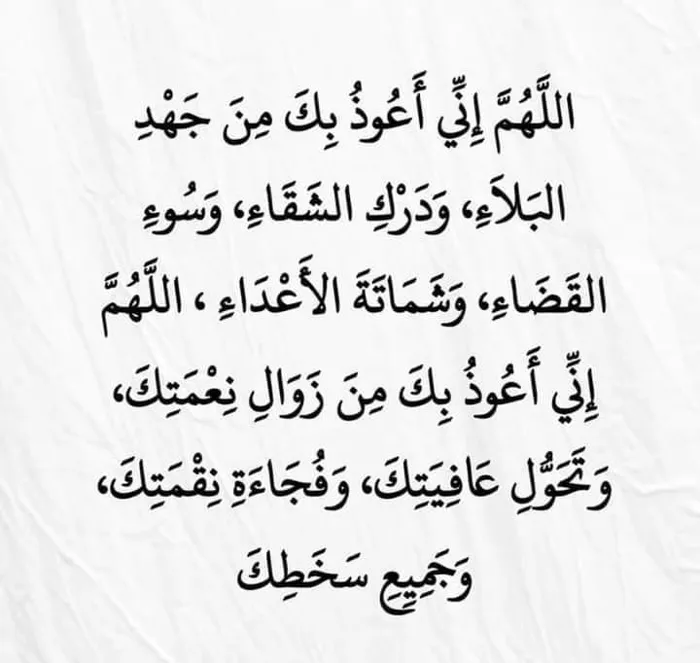 اللَّهُمَّ إِنِّي أَعُوذُ بِكَ مِنَ جَهْدِ
البَلاَءِ، وَدَرْكِ الشَقَاءِ، وَسُوءِ
القَضَاءِ، وَشَمَاتَةَ الأَعْدَاءِ ، اللَّهُمَّ
إِنِّي أَعُوذُ بِكَ مِنَ زَوَالِ نِعْمَتِكَ،
وَتَحَوُّلِ عَافِيَتِكَ، وَفُجَاءَةِ نِقْمَتِكَ،
وَجَمِيِعِ سَخَطِكَ